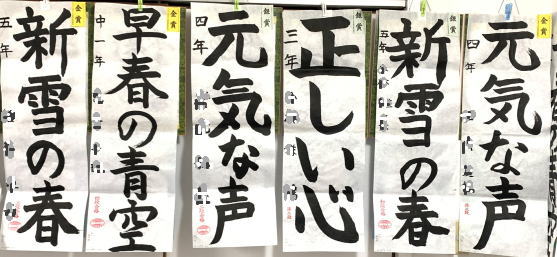 金賞
新雪の春
五年
金賞
早春の青空
中一年
銀賞
元気な声
四年
銀賞
正しい心
三年
銀賞
新雪の春
五年
金賞
元気な声
四年